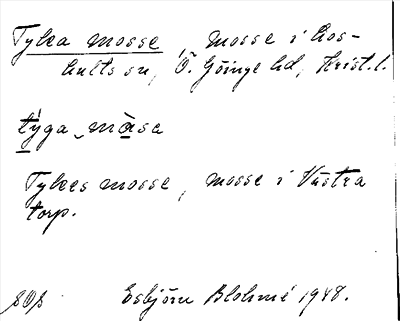 Tykea mosse mosse i Los-
hults sn, Ö. Göinge hd, Krist. l.
týga måsa
Tykes mosse, mosse i Västra
torp.
Esbjörn Blohmé 1948.